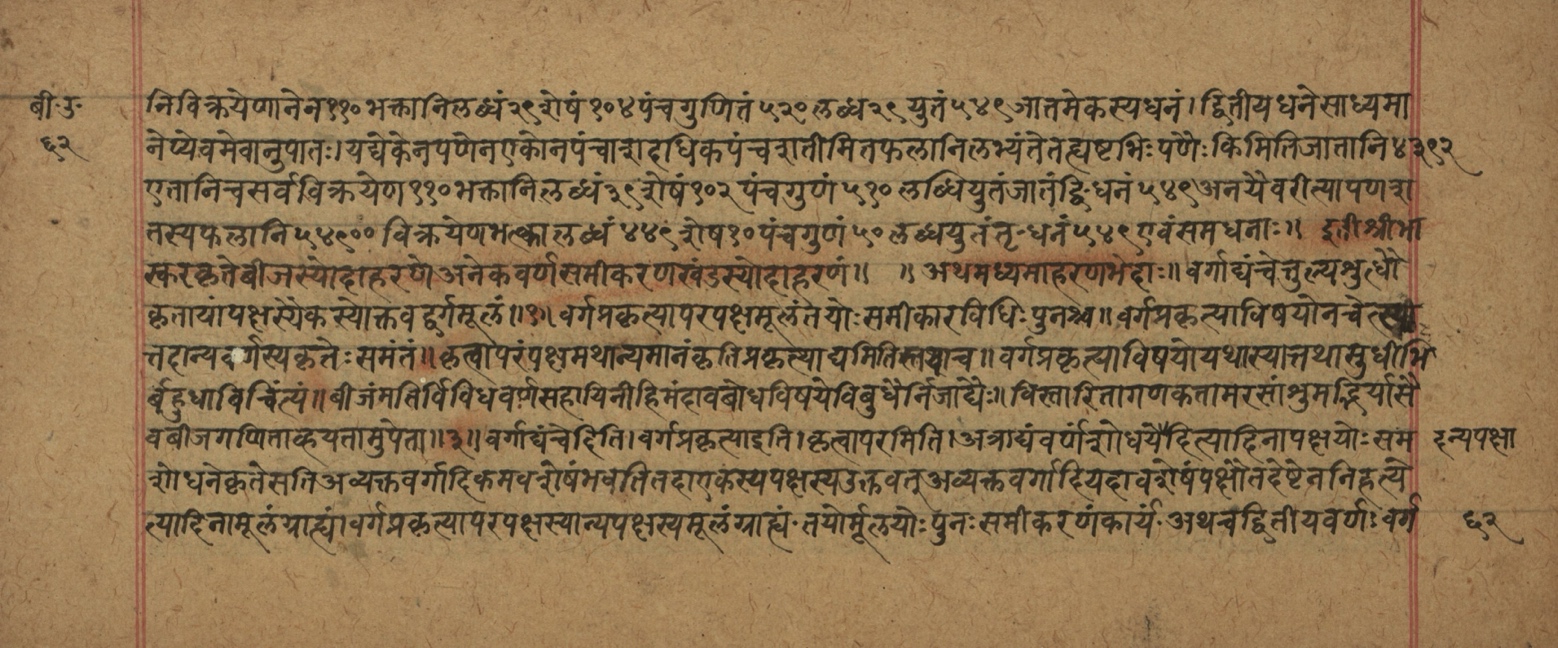 बी॰उ॰
६२
निविक्रयेणानेन११०भक्तानिलब्धं३९शेषं१०४पंचगुणितं५२०लब्ध२९युतं५४९जातमेकस्यधनं। द्वितीयधनेसाध्यमा
नेप्येवमेवानुपातः।यद्येकेनपणेनएकोनपंचाशदधिकपंचशतीमितफलानिलभ्यंतेतह्यष्टभिःपणैःकिमितिजातानि४३९२
एतानिचसर्वविक्रयेण११०भक्तानिलब्धं३९शेषं१०२पंचगुणं५१०लब्धियुतंजातंद्वि॰धनं५४९अनयैवरीत्यापणशा
तस्यफलानि५४९००विक्रयेणभत्क्तालब्धं४४९शेष१०पंचगुणं५०लब्धयुतंतृ॰धनं५४९एवंसमधनाः॥ इतीश्रीभा
स्करकृतेबीजस्योदाहरणेअनेकवर्णसमीकरणखंडस्योदाहरणं॥ ॥अथमध्यमाहरणभेदाः॥वर्गाद्यंचेत्तुल्यशुत्धौ
कृतायांपक्षस्यैकस्योक्तवद्वर्गमूलं॥१॥वर्गप्रकृत्यापरपक्षमूलंतयोःसमीकारविधिःपुनश्च॥वर्गप्रकृत्याविषयोनचेत्स्या
त्तदान्यवर्गस्यकृतेःसमंतं॥कृत्वापरंपक्षमथान्यमानंकृतिप्रकृत्याद्यमितिस्तथाच॥वर्गप्रकृत्याविषयोयथास्यात्तथासुधीभि
र्बहुधाविचिंत्यं॥बीजंमतिर्विविधवर्णसहायिनीहिमंदावबोधविषयेविबुधैर्निजाद्यैः॥विस्तारितागणकतामरसांशुमद्भिर्यासै
वबीजगणिताव्हयतामुपेता॥३॥वर्गाद्यंचेदिति।वर्गप्रकृत्याइति।कृत्वापरमिति।अत्राद्यंवर्णंशोधयेदित्यादिनापक्षयोःसम
दन्यपक्षा
शोधनेकृतेसतिअव्यक्तवर्गादिकमवशेषंभवतितदाएकस्यपक्षस्यउक्तवत्अव्यक्तवर्गादियदावशेषंपक्षौतदेष्टेननिहत्ये
त्यादिनामूलंग्राह्यं।वर्गप्रकृत्यापरपक्षस्यान्यपक्षस्यमूलंग्राह्यं॰तयोर्मूलयोःपुनःसमीकरणंकार्यं॰अथचद्वितीयवर्णःवर्ग
६२